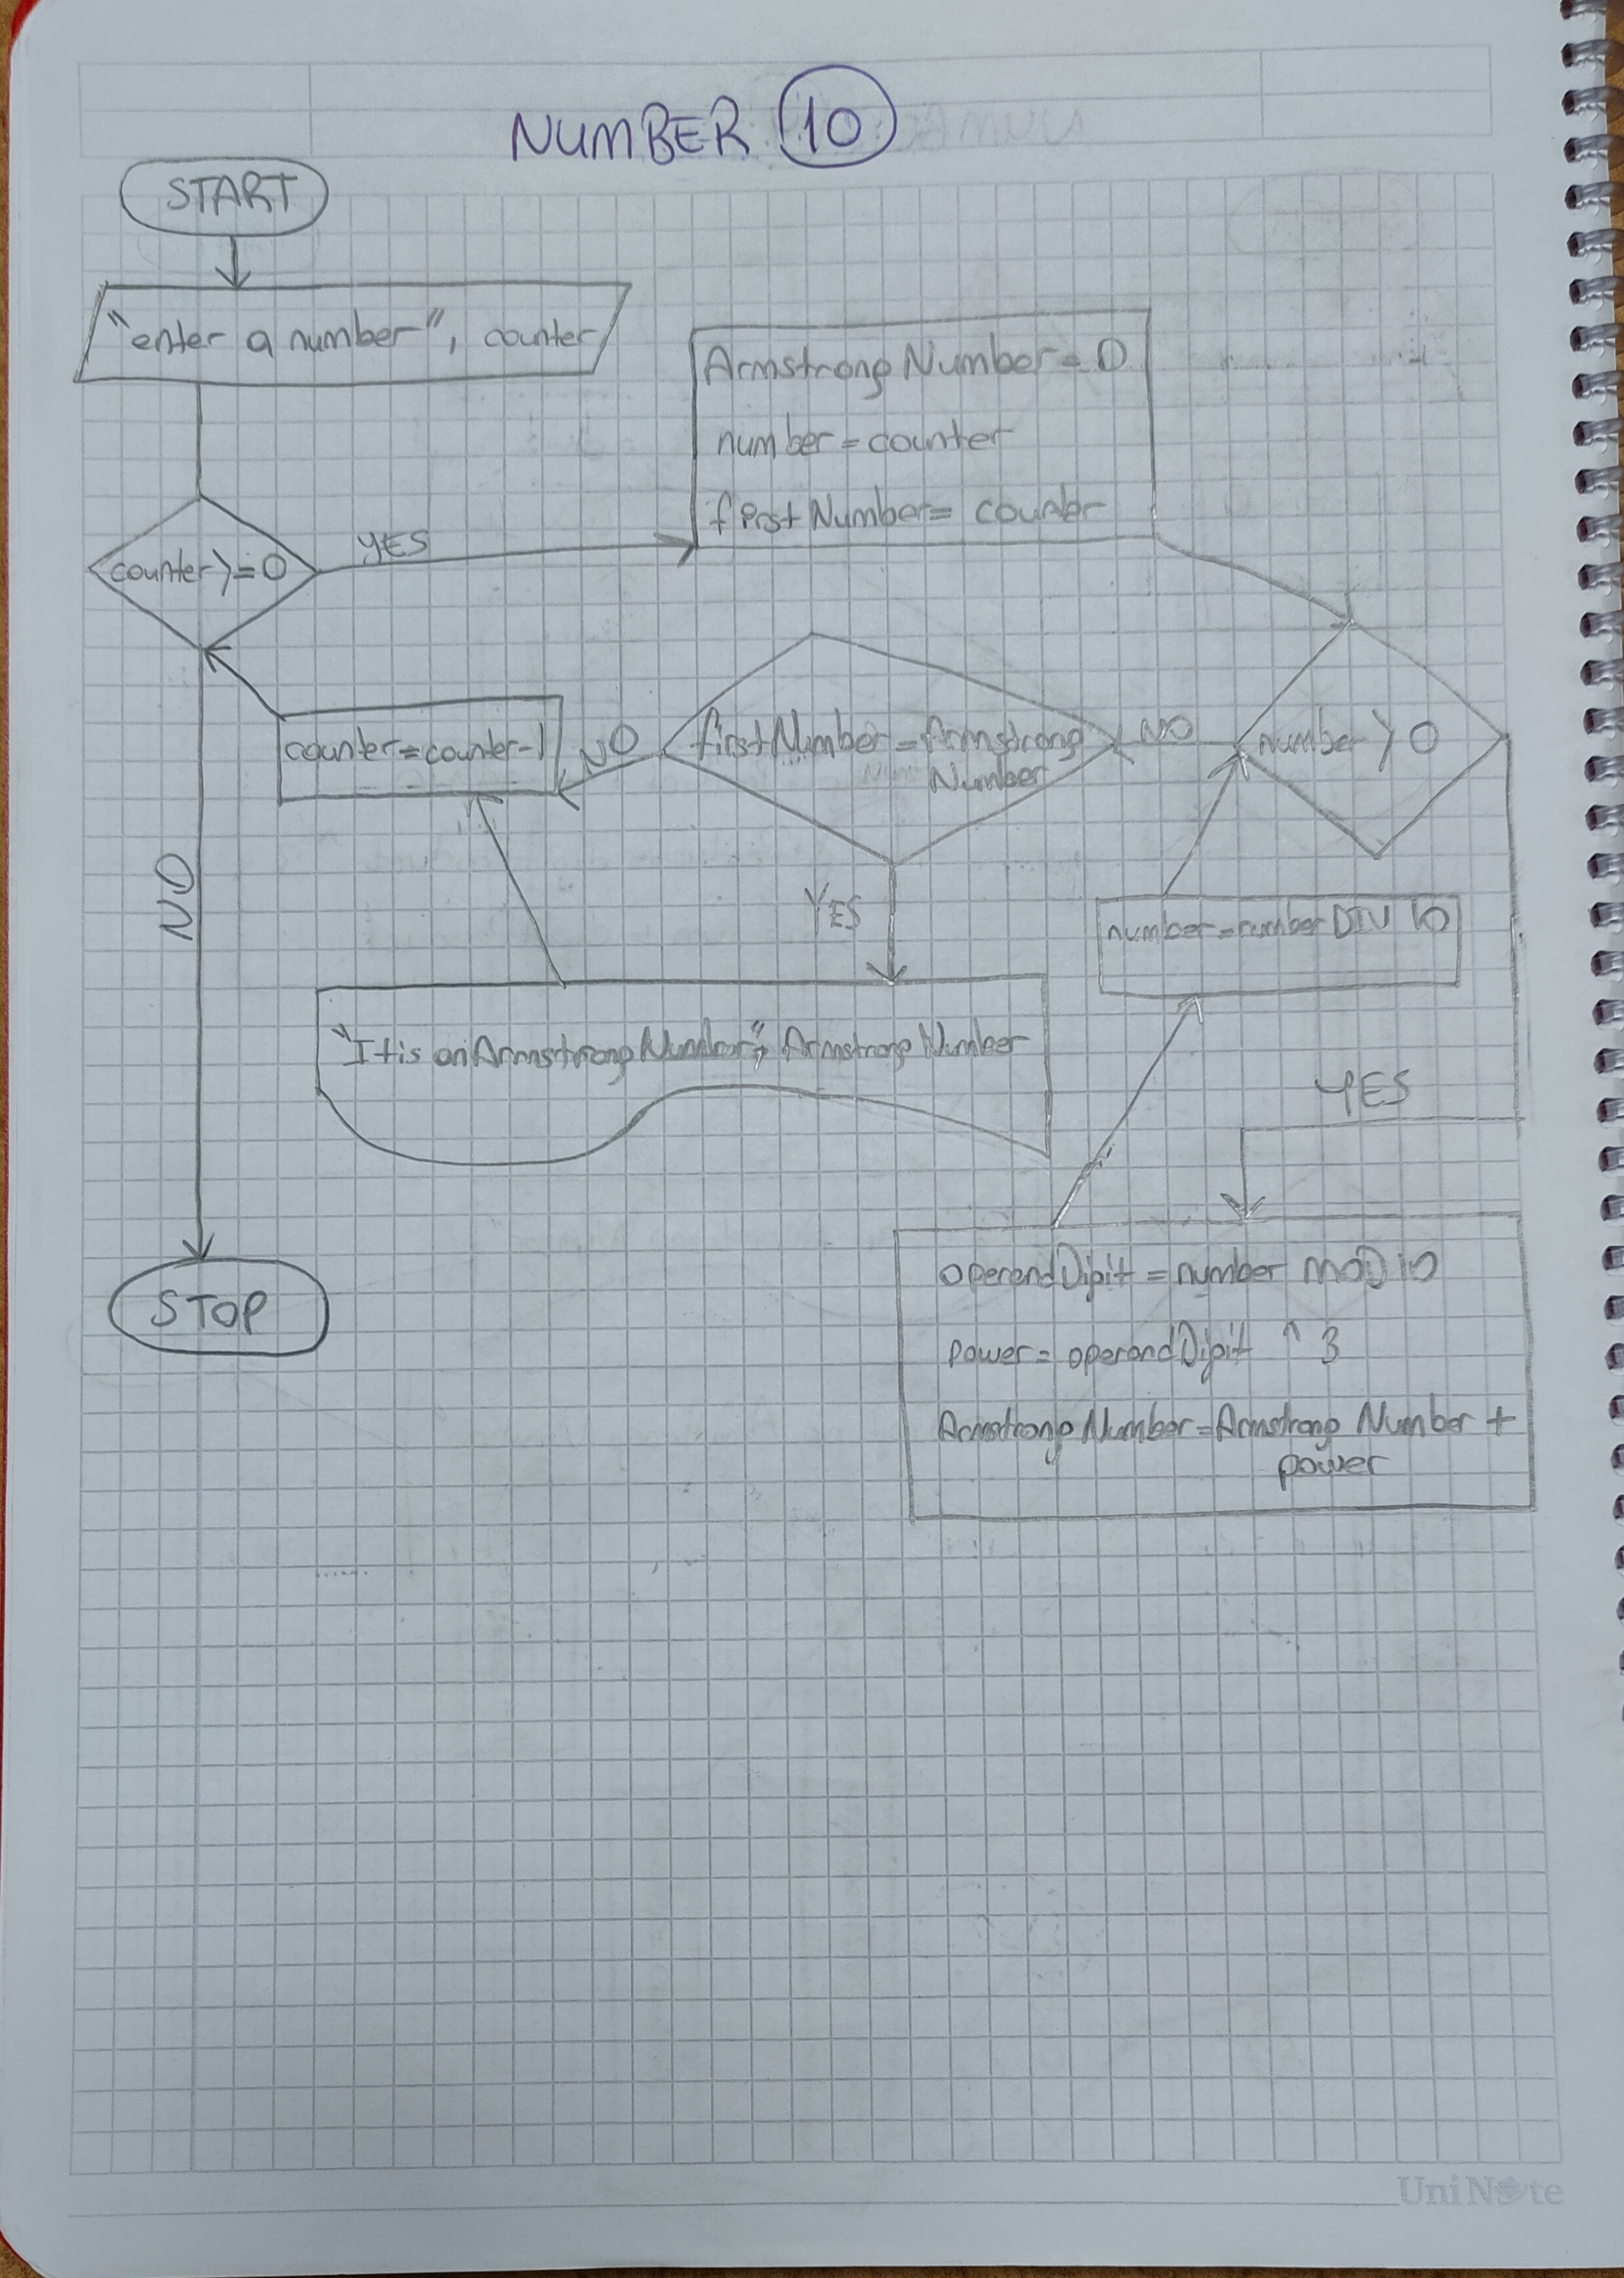 NUMBER 10
START
"enter a number", counter
Armstrong Number = 0
number = counter
first Number = counter
counter >= 0
YES
counter = counter - 1
NO
first Number = Armstrong
Number
NO
number > 0
NO
YES
number = number DIV 10
"It is an Armstrong Number", Armstrong Number
YES
STOP
operandDigit = number MOD 10
power = operandDigit ^ 3
Armstrong Number = Armstrong Number +
power
UniNote